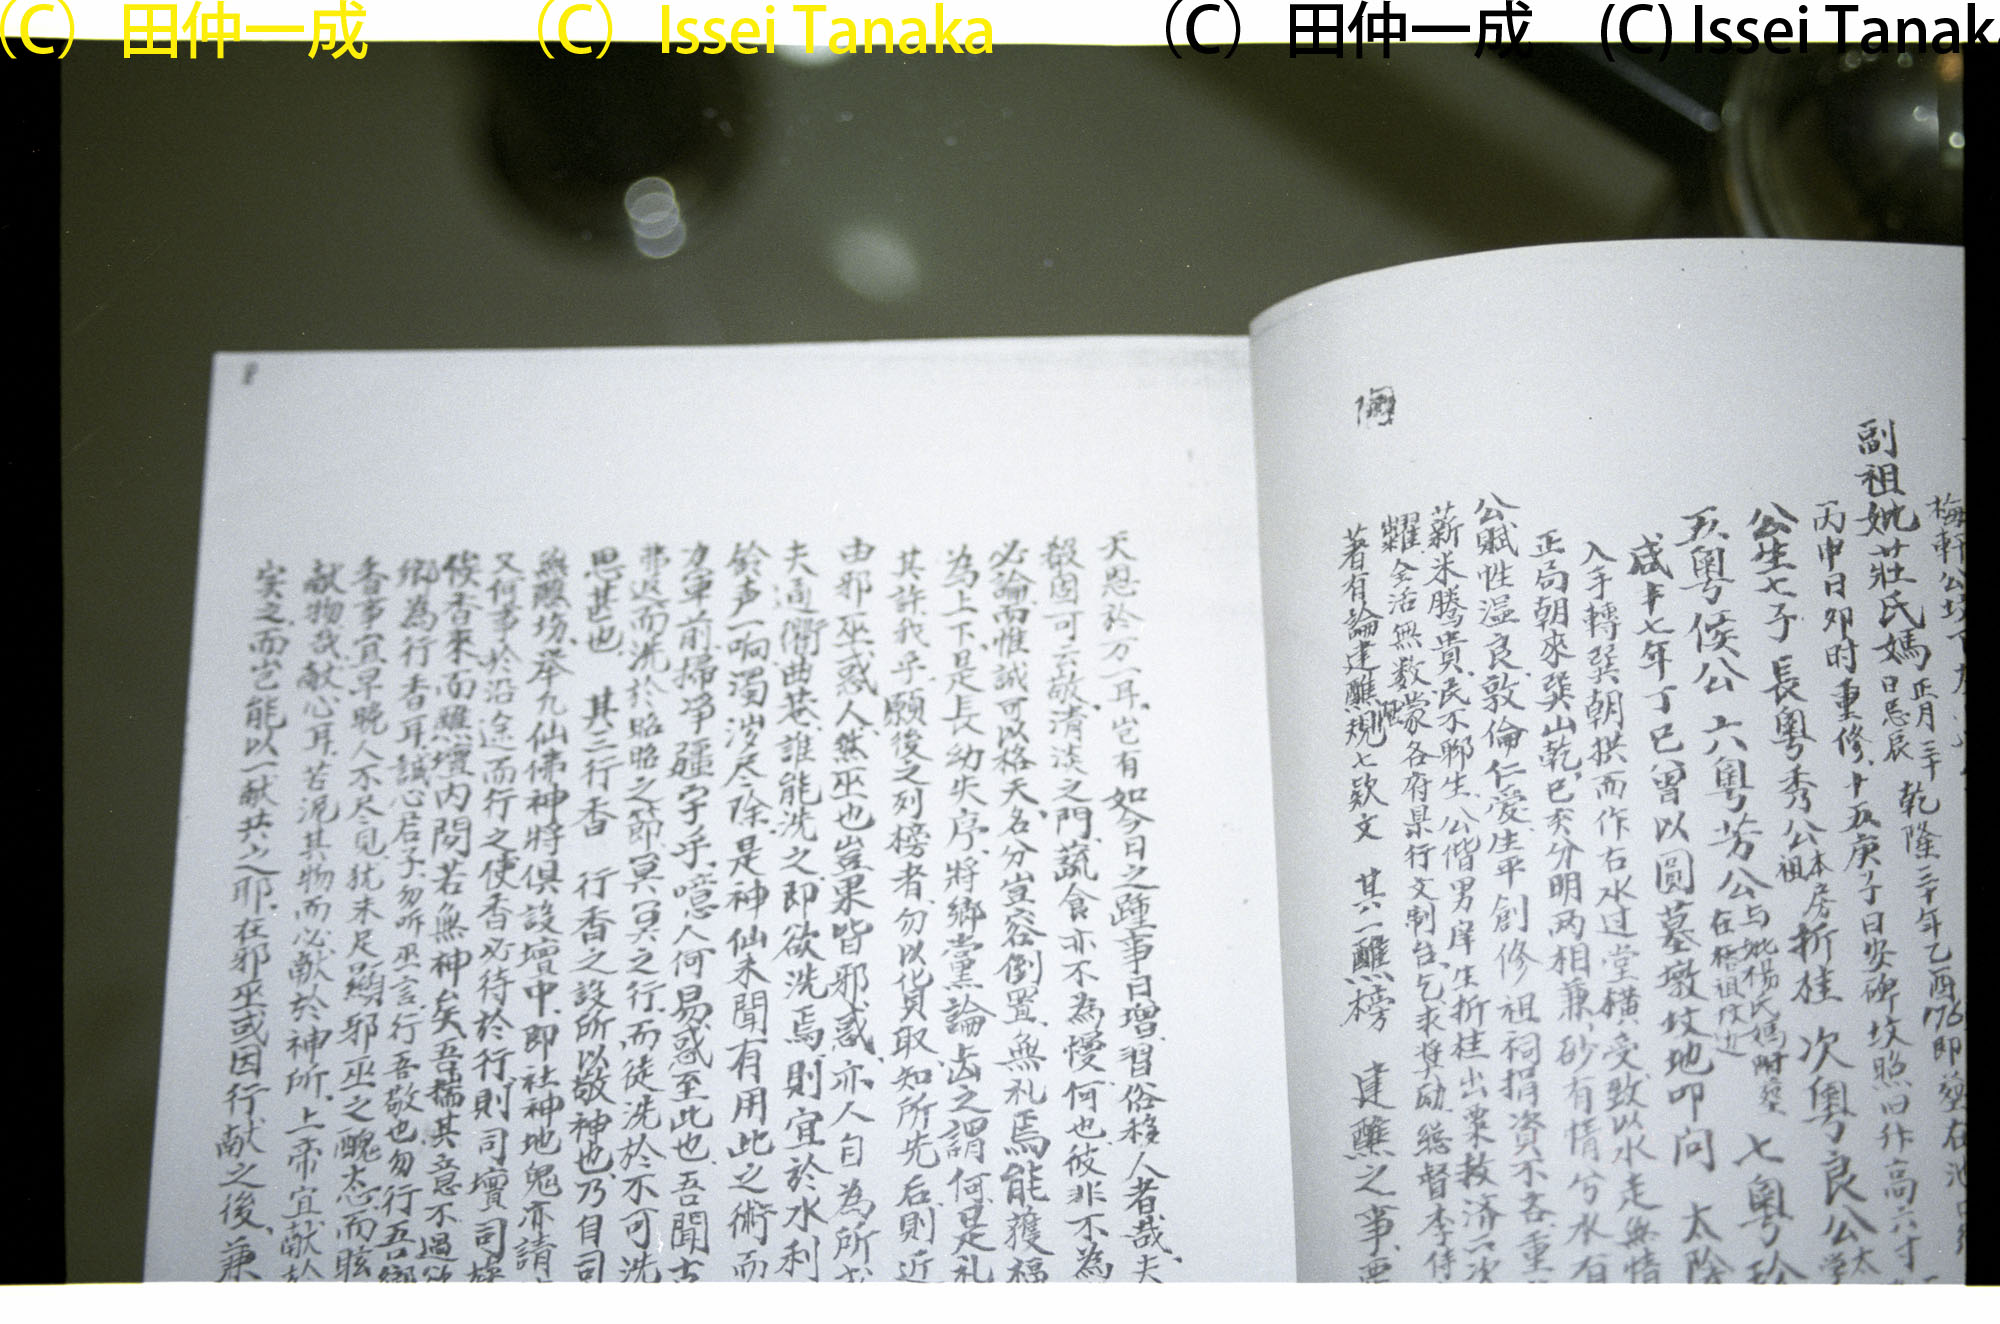 (C) 田仲一成 (C) Issei Tanaka (C) 田仲一成 (C) Issei Tanak
梅軒公坟下
副祖妣莊氏媽 正月三十日忌辰 乾隆三十年乙酉176即葬在池
丙申日卯时重修十五庚子日安碑坟照旧作高六寸
公生七子 長粵秀公 本房祖 折桂 次粵良公 太
五粵侯公 六粵芳公 与妣楊氏媽附葬在梧祖坟边 七粵珍
咸丰七年丁巳曾以圓墓墩坟地叩问 太
入手轉巽朝拱而作右水过堂橫受致以水走無情
正局朝來巽山乾巳亥分明两相兼砂有情兮水有
公賦性温良敦倫仁愛生平創修祖祠捐資不吝重
薪米騰貴民不聊生公偕男庠生折桂出粟救济六次
糶全活無数蒙各府県行文制台乞求奖励總督李侍
著有論建醮規七款文 其一醮榜 建醮之事
天恩於万一耳豈有如今日之踵事日增習俗移人者哉夫
殽固可云敬清淡之門蔬食亦不為慢何也彼非不為
必論而惟誠可以格天名分豈容倒置無礼焉能獲福
為上下是長幼失序將鄉黨論齿之謂何是礼
其許我乎願後之列榜者勿以化貝取知所先后則近
由邪巫惑人然巫也豈果皆邪惑亦人自為所
夫通衢曲巷誰能洗之即欲洗焉則宜於水利
鈴声一响濁涉尽除是神仙未聞有用此之術而
力軍前掃净疆字乎噫人何易惑至此也吾聞古
弗返而洗於昭昭之節冥冥之行而徒洗於不可洗
思甚也 其三行香 行香之設所以敬神也乃自司
無醮場举九仙佛神將俱設壇中即社神地鬼亦請
又何事於沿途而行之使香必待於行則司壇司
俟香來而醮壇内問若無神矣吾揣其意不過欲
鄉為行香耳誠心居子勿听巫言行吾敬也勿行吾
香事宜早晚人不尽見犹未足顯邪巫之醜态而眩
献物哉献心耳若泥其物而必献於神所上帝宜献於
矣之而岂能以一献共之耶在邪巫或因行献之後兼